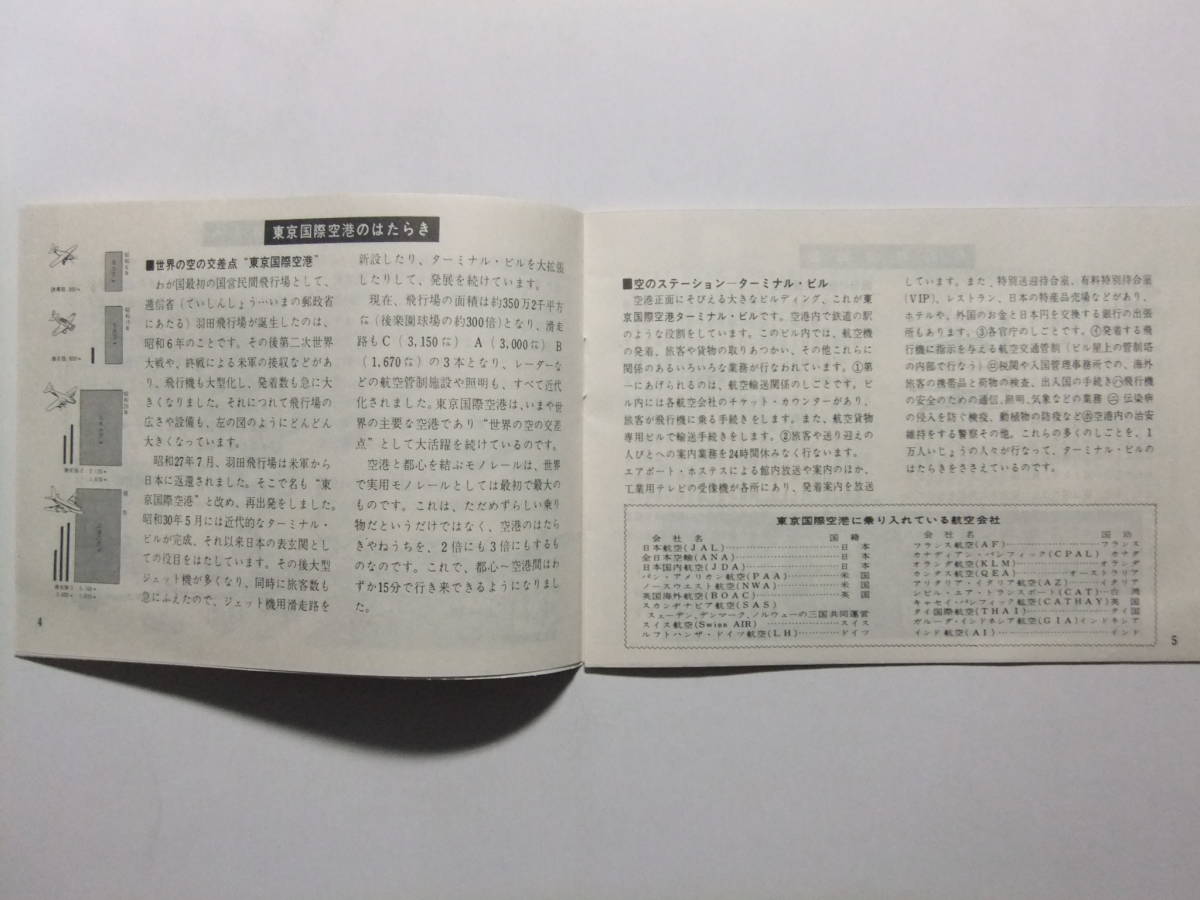 東京国際空港のはたらき
■世界の空の交差点“東京国際空港”
わが国最初の国営民間飛行場として、
逓信省(ていしんしょう…いまの郵政省
にあたる)羽田飛行場が誕生したのは、
昭和6年のことです。その後第二次世界
大戦や、終戦による米軍の接収などがあ
り、飛行機も大型化し、発着数も急に大
きくなりました。それにつれて飛行場の
広さや設備も、左の図のようにどんどん
大きくなっています。
昭和27年7月、羽田飛行場は米軍から
日本に返還されました。そこで名も“東
京国際空港”と改め、再出発をしました。
昭和30年5月には近代的なターミナル・
ビルが完成、それ以来日本の表玄関とし
ての役目をはたしています。その後大型
ジェット機が多くなり、同時に旅客数も
急にふえたので、ジェット機用滑走路を
新設したり、ターミナル・ビルを大拡張
したりして、発展を続けています。
現在、飛行場の面積は約350万2千平方
㍍(後楽園球場の約300倍)となり、滑走
路もC(3,150㍍)A(3,000㍍)B
(1,670㍍)の3本となり、レーダーな
どの航空管制施設や照明も、すべて近代
化されました。東京国際空港は、いまや世
界の主要な空港であり“世界の空の交差
点”として大活躍を続けているのです。
空港と都心を結ぶモノレールは、世界
で実用モノレールとしては最初で最大の
ものです。これは、ただめずらしい乗り
物だというだけではなく、空港のはたら
きやねうちを、2倍にも3倍にもするも
のなのです。これで、都心〜空港間はわ
ずか15分で行き来できるようになりまし
た。
4
■空のステーション―ターミナル・ビル
空港正面にそびえる大きなビルディング、これが東
京国際空港ターミナル・ビルです。空港内で鉄道の駅
のような役割をしています。このビル内では、航空機
の発着、旅客や貨物の取りあつかい、その他これらに
関係のあるいろいろな業務が行なわれています。①第
一にあげられるのは、航空輸送関係のしごとです。ビ
ル内には各航空会社のチケット・カウンターがあり、
旅客が飛行機に乗る手続きをします。また、航空貨物
専用ビルで輸送手続きをします。②旅客や送り迎えの
人びとへの案内業務を24時間休みなく行ないます。
エアポート・ホステスによる館内放送や案内のほか、
工業用テレビの受像機が各所にあり、発着案内を放送
しています。また、特別送迎待合室、有料特別待合室
(VIP)、レストラン、日本の特産品売場などがあり、
ホテルや、外国のお金と日本円を交換する銀行の出張
所もあります。③各官庁のしごとです。㋑発着する飛
行機に指示を与える航空交通管制(ビル屋上の管制塔
の内部で行なう)㋺税関や入国管理事務所での、海外
旅客の携帯品と荷物の検査、出入国の手続き㋩飛行機
の安全のための通信、照明、気象などの業務㋥伝染病
の侵入を防ぐ検疫、動植物の防疫など㋭空港内の治安
維持をする警察その他。これらの多くのしごとを、1
万人いじょうの人々が行なって、ターミナル・ビルの
はたらきをささえているのです。
東京国際空港に乗り入れている航空会社
会社名 国籍
日本航空(JAL) 日本
全日本空輸(ANA) 日本
日本国内航空(JDA) 日本
パン・アメリカン航空(PAA) 米国
ノースウエスト航空(NWA) 米国
英国海外航空(BOAC) 英国
スカンヂナビア航空(SAS)
スェーデン、デンマーク、ノルウェーの三国共同運営
スイス航空(Swiss AIR) スイス
ルフトハンザ・ドイツ航空(LH) ドイツ
会社名 国籍
フランス航空(AF) フランス
カナディアン・パシフィック(CPAL) カナダ
オランダ航空(KLM) オランダ
カンタス航空(QEA) オーストラリア
アリタリア・イタリア航空(AZ) イタリア
シビル・エア・トランスポート(CAT) 台湾
キャセイ・パシフィック航空(CATHAY) 英国
タイ国際航空(THAI) タイ国
ガルーダ・インドネシア航空(GIA) インドネシア
インド航空(AI) インド
5